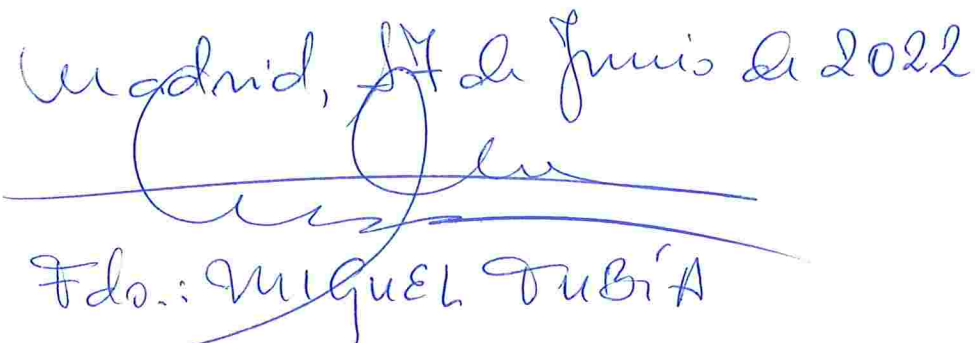 Madrid, 17 de Junio de 2022
Fdo.: MIGUEL TUBÍA